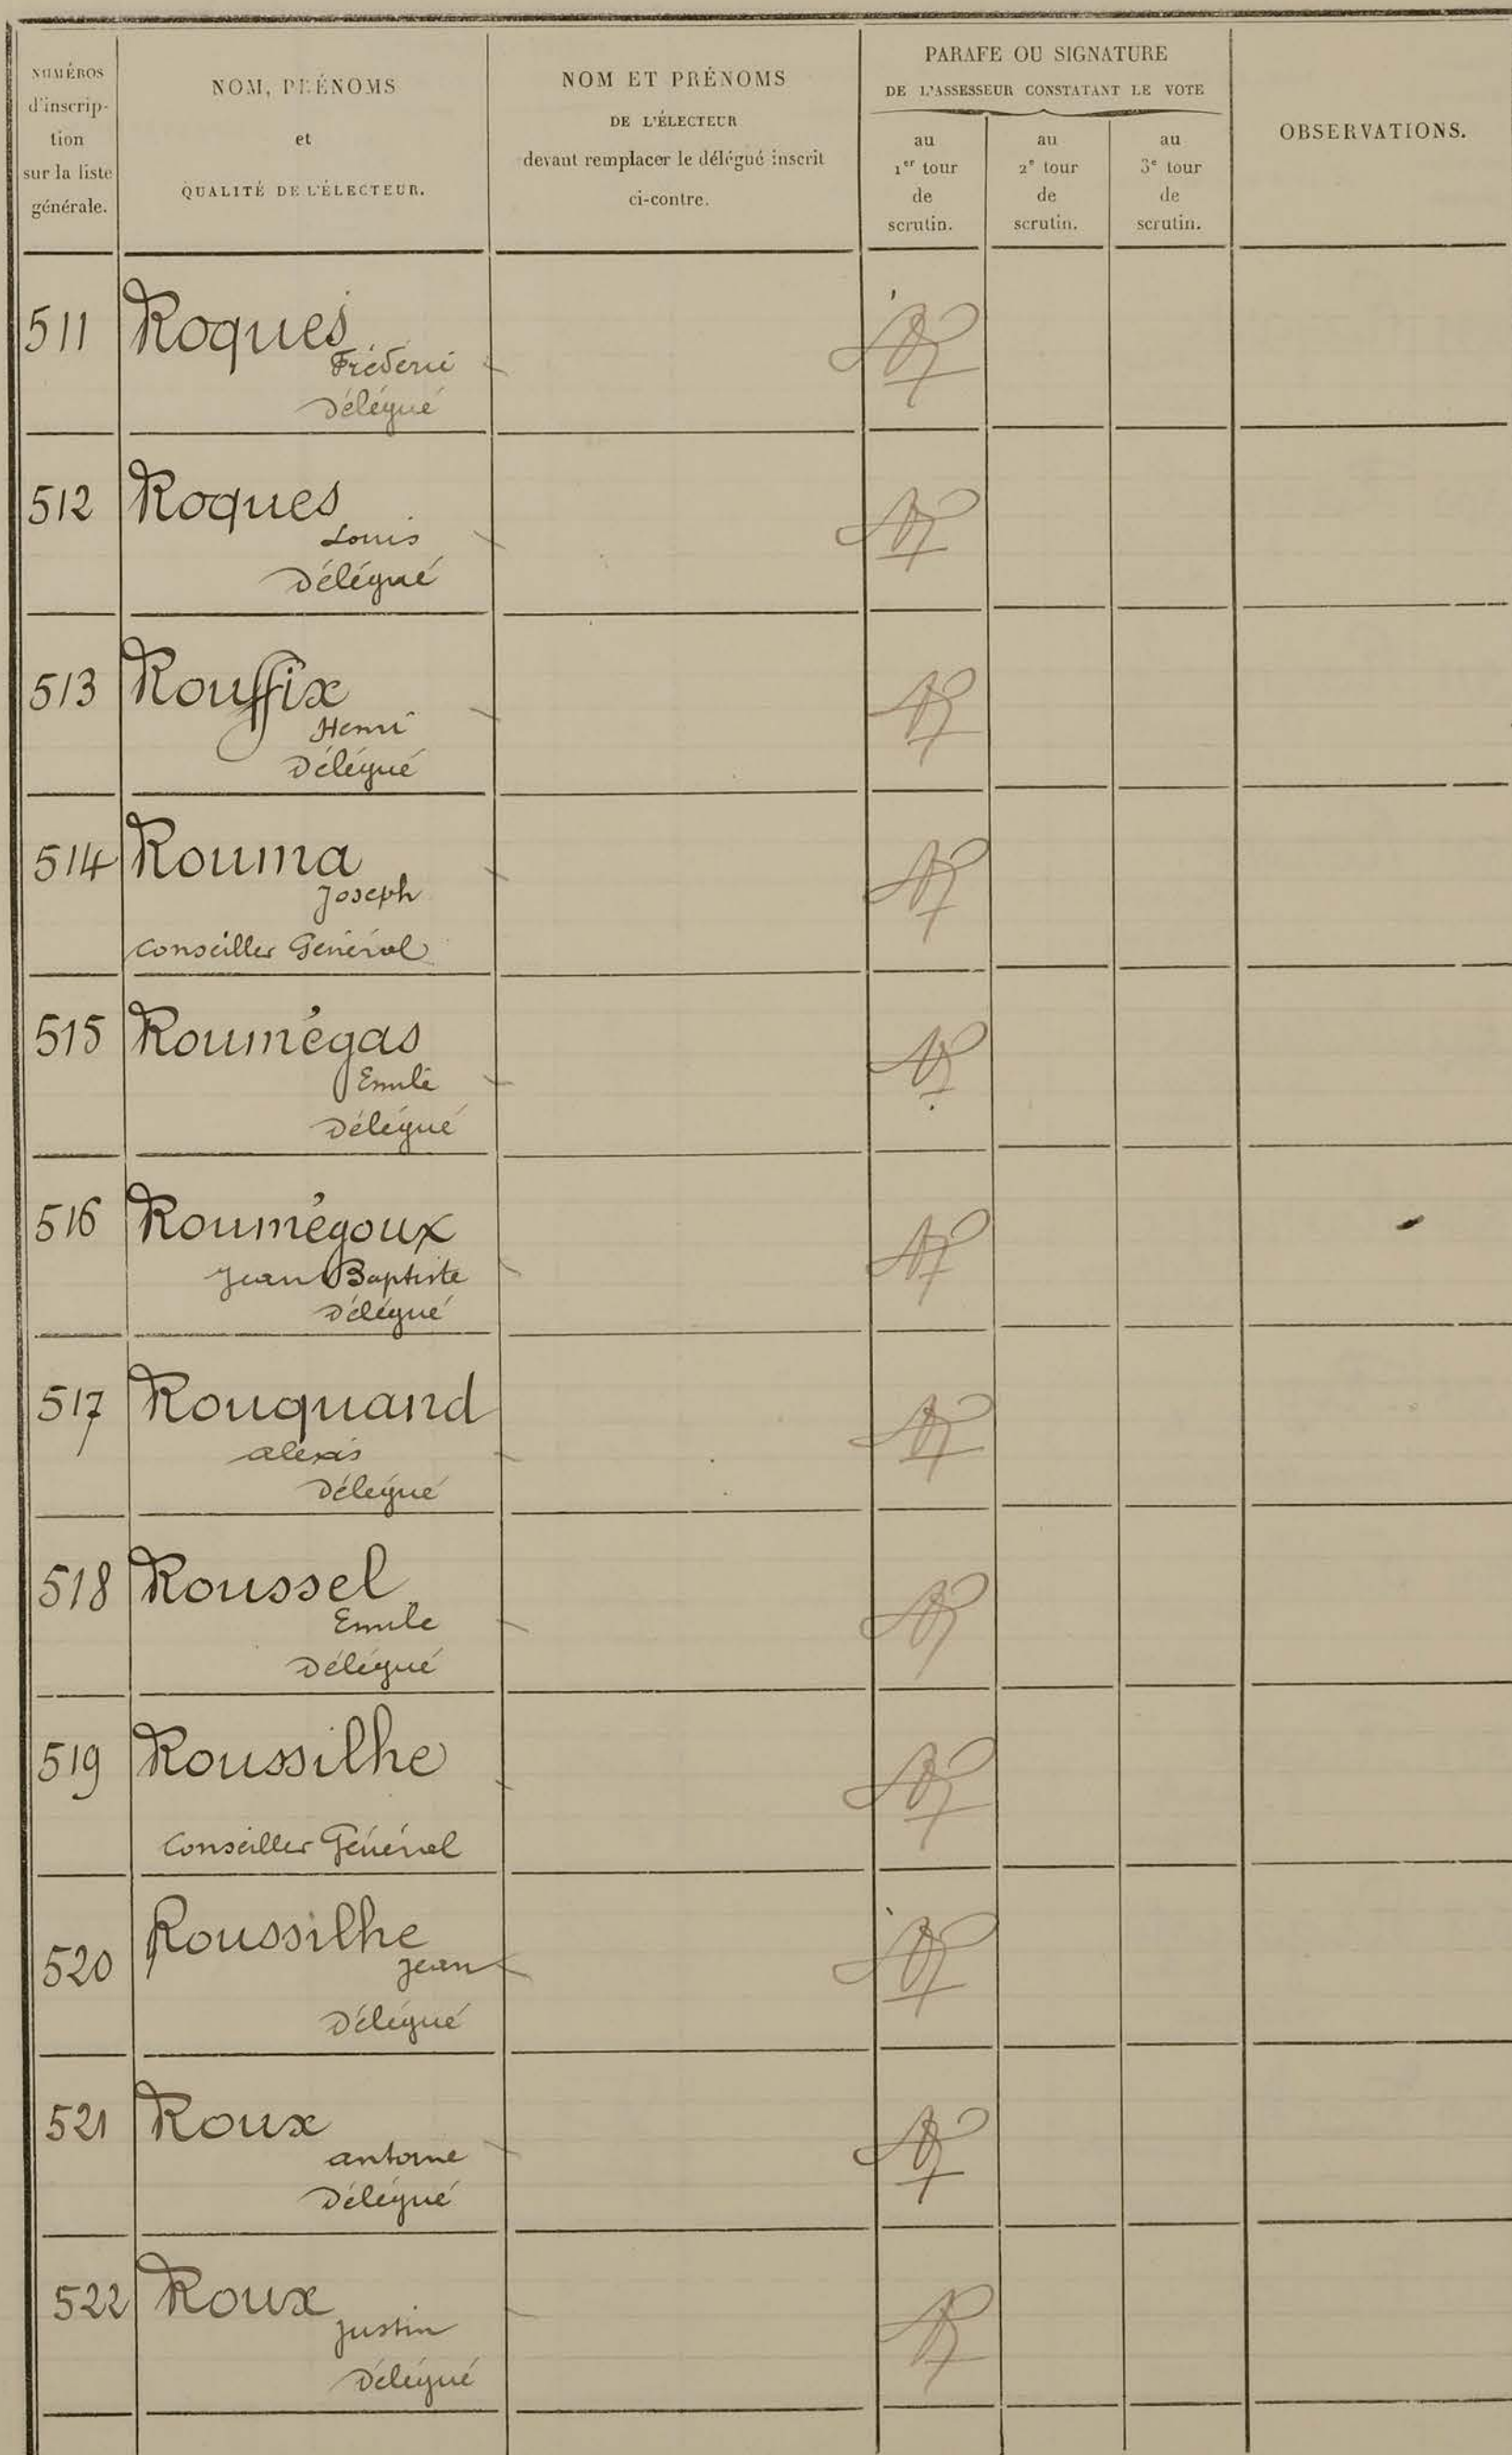 NUMÉROS
d'inscrip-
tion
sur la liste
générale.
NOM, PRÉNOMS
et
QUALITÉ DE L'ÉLECTEUR.
NOM ET PRÉNOMS
DE L'ÉLECTEUR
devant remplacer le délégué inscrit
ci-contre.
PARAFE OU SIGNATURE
DE L'ASSESSEUR CONSTATANT LE VOTE
au
1er tour
de
scrutin.
au
2e tour
de
scrutin.
au
3e tour
de
scrutin.
OBSERVATIONS.
511 Roques
Frédéric
Délégué
512 Roques
Louis
Délégué
513 Rouffix
Henri
Délégué
514 Rouma
Joseph
Conseiller Général
515 Roumégas
Emile
Délégué
516 Roumégoux
Jean Baptiste
Délégué
517 Rouquand
Alexis
Délégué
518 Roussel
Emile
Délégué
519 Roussilhe
Conseiller Général
520 Roussilhe
Jean
Délégué
521 Roux
Antoine
Délégué
522 Roux
Justin
Délégué